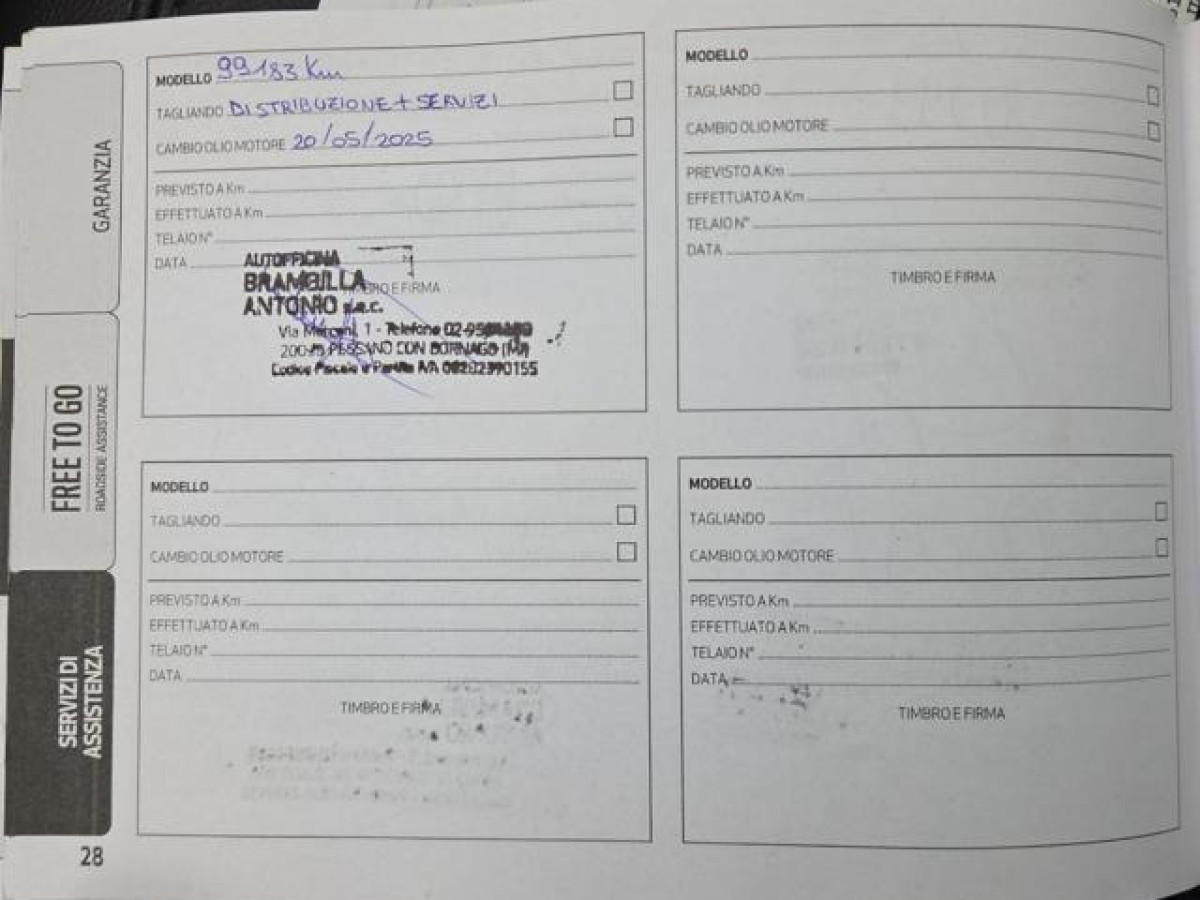 GARANZIA
FREE TO GO
ROADSIDE ASSISTANCE
SERVIZI DI
ASSISTENZA
28
MODELLO 99183 Km
TAGLIANDO DISTRIBUZIONE + SERVIZI
CAMBIO OLIO MOTORE 20/05/2025
PREVISTO A Km
EFFETTUATO A Km
TELAIO N°
DATA
TIMBRO E FIRMA
AUTOFFICINA
BRAMBILLA
ANTONIO s.a.c.
Via Marconi, 1 - Telefono
PESSANO CON BORNAGO (MI)
Codice Fiscale e Partita IVA
MODELLO
TAGLIANDO
CAMBIO OLIO MOTORE
PREVISTO A Km
EFFETTUATO A Km
TELAIO N°
DATA
TIMBRO E FIRMA
MODELLO
TAGLIANDO
CAMBIO OLIO MOTORE
PREVISTO A Km
EFFETTUATO A Km
TELAIO N°
DATA
TIMBRO E FIRMA
MODELLO
TAGLIANDO
CAMBIO OLIO MOTORE
PREVISTO A Km
EFFETTUATO A Km
TELAIO N°
DATA
TIMBRO E FIRMA